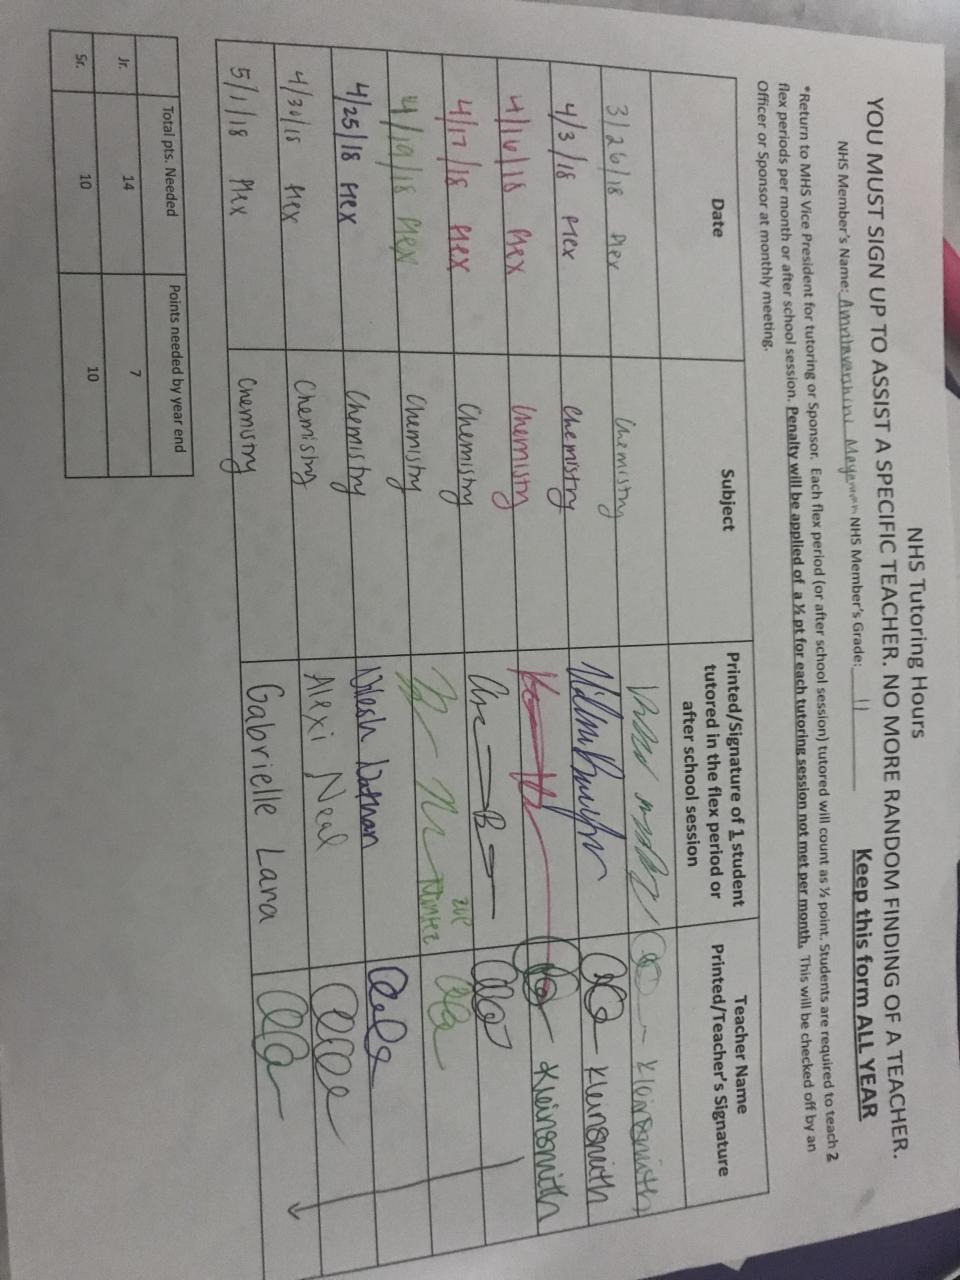 NHS Tutoring Hours
YOU MUST SIGN UP TO ASSIST A SPECIFIC TEACHER. NO MORE RANDOM FINDING OF A TEACHER.
NHS Member's Name: NHS Member's Grade: 11 Keep this form ALL YEAR
*Return to MHS Vice President for tutoring or Sponsor. Each flex period (or after school session) tutored will count as ½ point. Students are required to teach 2
flex periods per month or after school session. Penalty will be applied of a ½ pt for each tutoring session not met per month. This will be checked off by an
Officer or Sponsor at monthly meeting.
Date Subject Printed/Signature of 1 student tutored in the flex period or after school session Teacher Name Printed/Teacher's Signature
3/26/18 flex Chemistry Kleinsmith
4/3/18 flex Chemistry Kleinsmith
4/16/18 flex Chemistry Kleinsmith
4/17/18 flex Chemistry
4/19/18 flex Chemistry
4/25/18 flex Chemistry
4/30/18 flex Chemistry Alexi Neal
5/1/18 flex Chemistry Gabrielle Lana
Total pts. Needed Points needed by year end
Jr. 14 7
Sr. 10 10